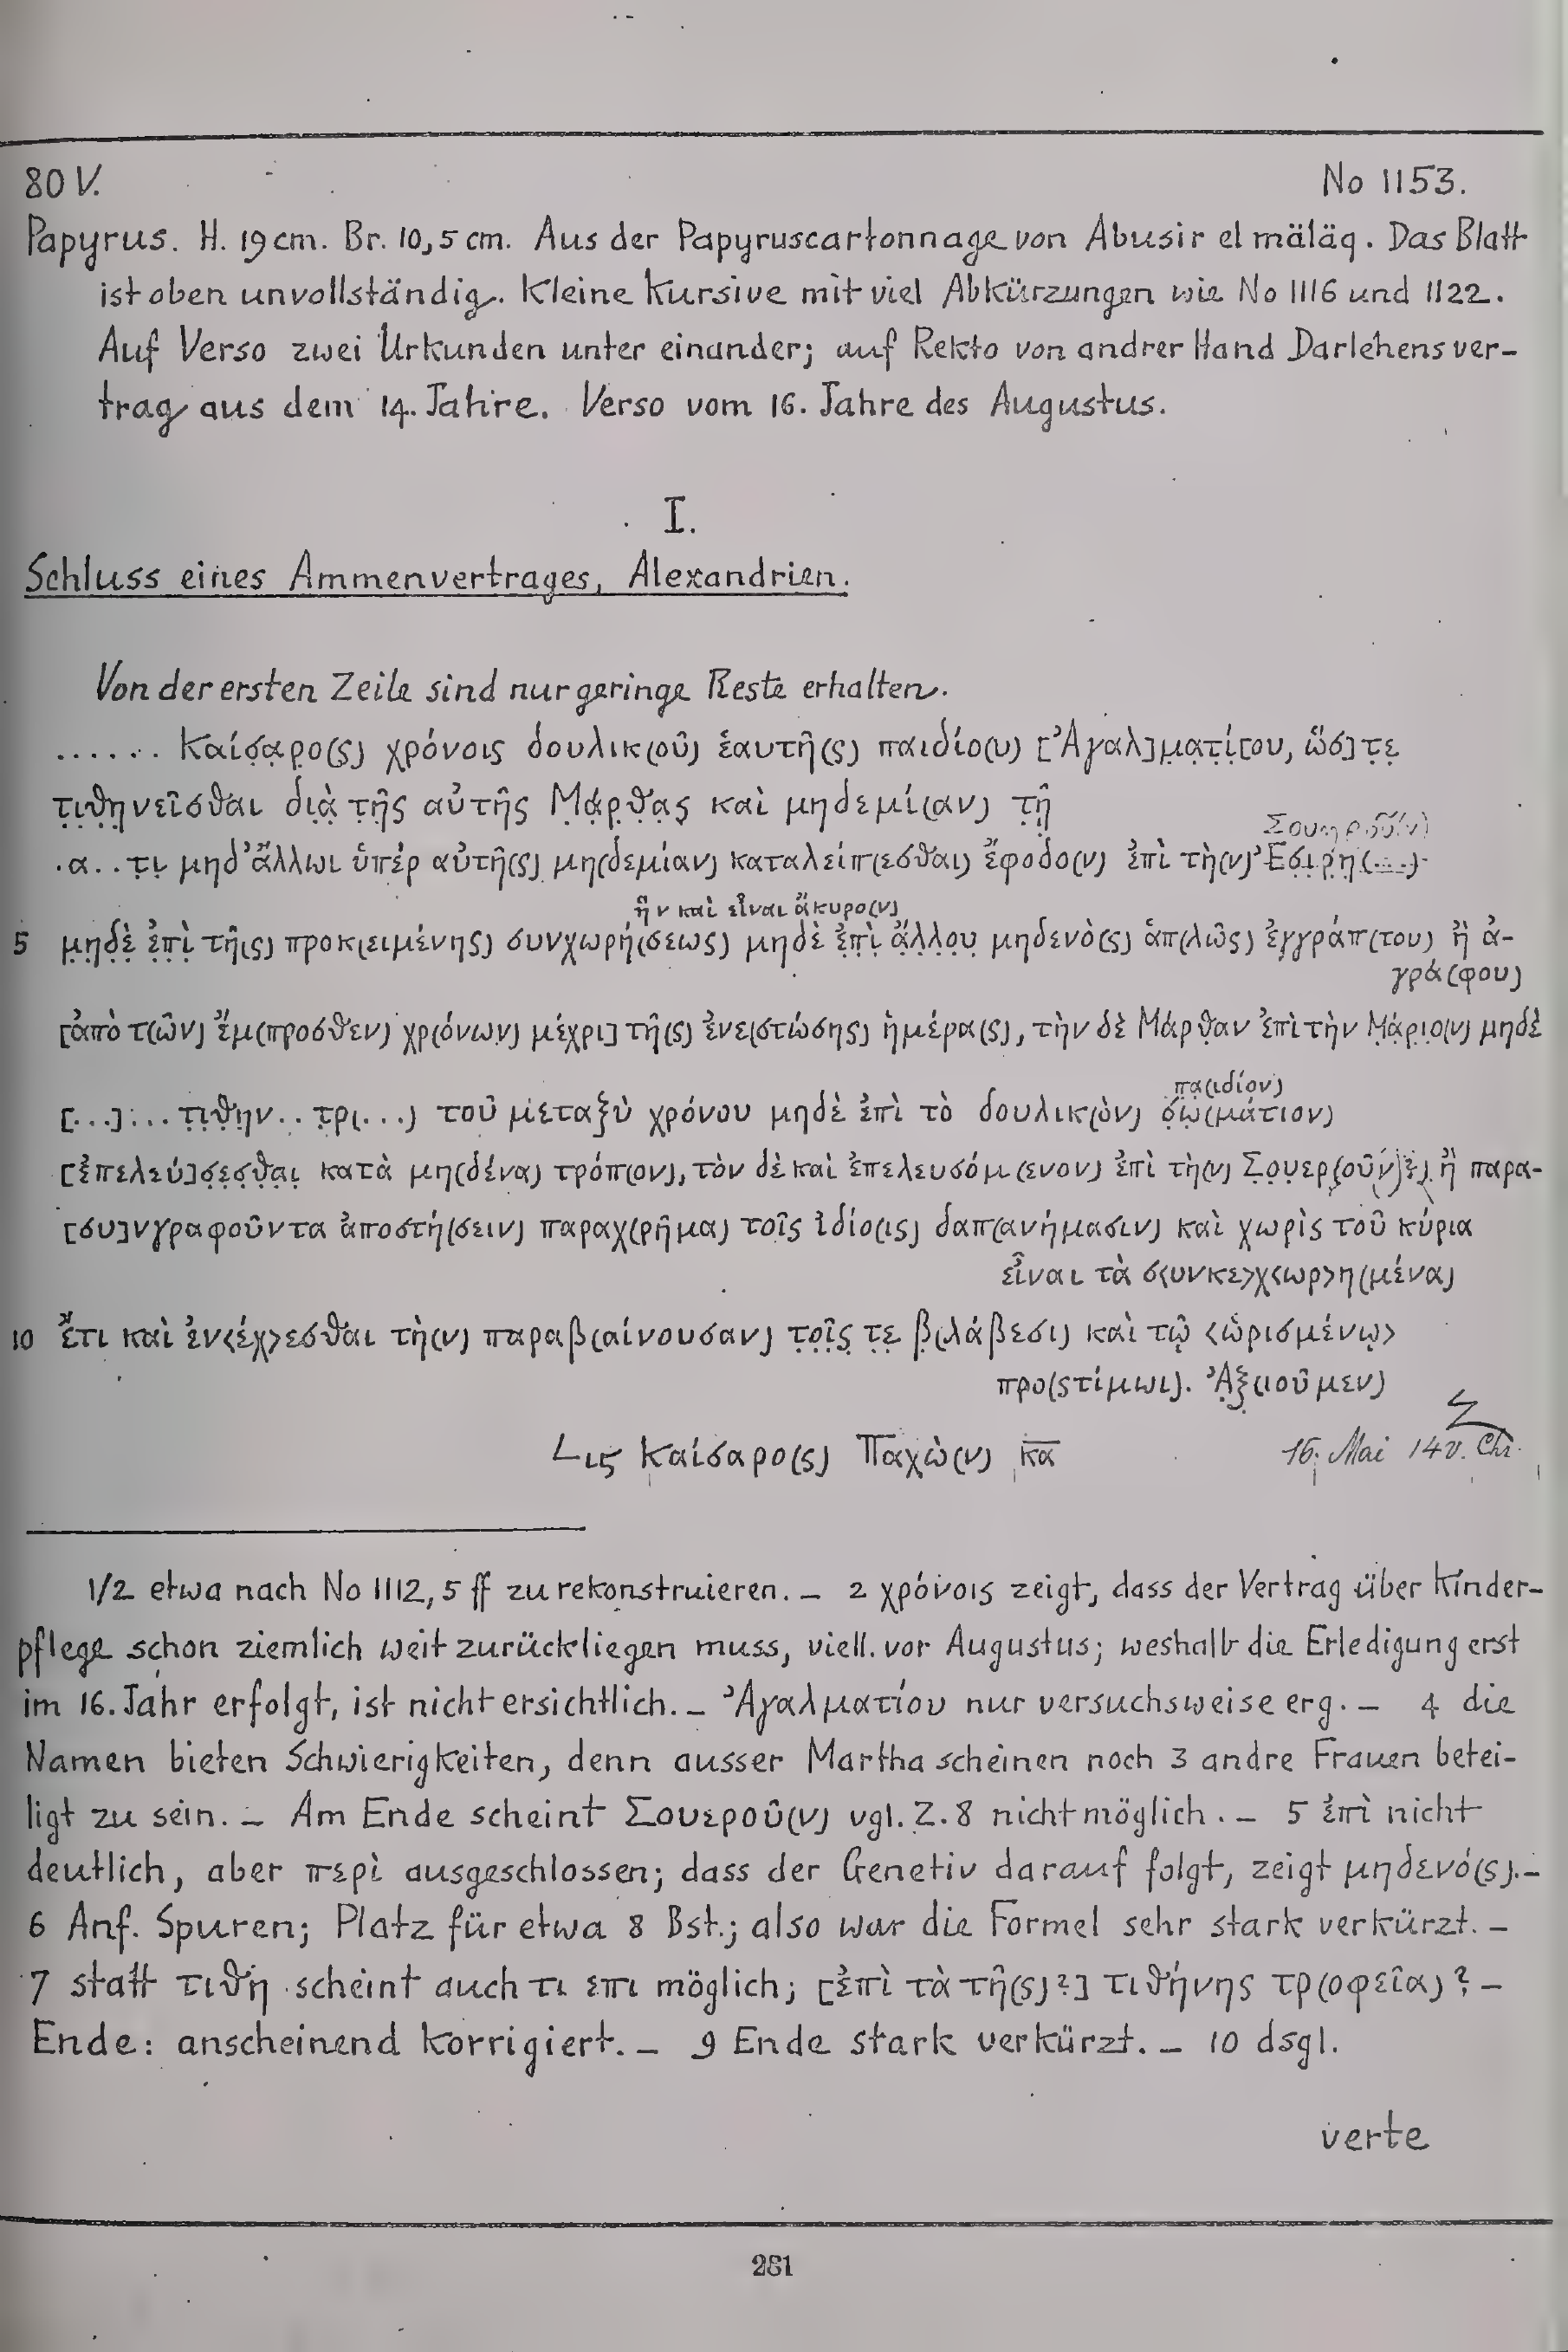 80 V.
No 1153.
Papyrus. H. 19 cm. Br. 10,5 cm. Aus der Papyruscartonnage von Abusir el mäläq. Das Blatt
ist oben unvollständig. Kleine Kursive mit viel Abkürzungen wie No 1116 und 1122.
Auf Verso zwei Urkunden unter einander; auf Rekto von andrer Hand Darlehensver-
trag aus dem 14. Jahre. Verso vom 16. Jahre des Augustus.
I.
Schluss eines Ammenvertrages, Alexandrien.
Von der ersten Zeile sind nur geringe Reste erhalten.
...... Καίσ̣α̣ρ̣ο(ς) χρόνοις δουλικ(οῦ) ἑαυτῆ(ς) παιδίο(υ) [Ἀγαλ]μ̣α̣τ̣ί̣[ου, ὥσ]τ̣ε̣
τ̣ι̣θ̣η̣νεῖσθαι δι̣ὰ̣ τ̣ῆ̣ς αὐτῆς Μ̣ά̣ρ̣θ̣α̣ς̣ καὶ μηδεμί(αν) τ̣ῇ̣
Σουηροῦ(ν)
.α..τ̣ι̣ μηδ' ἄλλωι ὑπὲρ αὐτῆ(ς) μη(δεμίαν) καταλείπ(εσθαι) ἔφοδο(ν) ἐπὶ τὴ(ν) Ἐσ̣ι̣ρ̣η̣(...)
ἣν καὶ εἶναι ἄκυρο(ν)
5 μ̣η̣δ̣ὲ̣ ἐ̣π̣ὶ̣ τῆ̣(ς) προκ(ειμένης) συνχωρή(σεως) μηδὲ ἐ̣π̣ὶ̣ ἄ̣λ̣λ̣ο̣υ̣ μηδενὸ(ς) ἁπ(λῶς) ἐγγράπ(του) ἢ ἀ-
γρά(φου)
[ἀπὸ τ(ῶν) ἔμ(προσθεν) χρ(όνων) μέχρι] τῆ(ς) ἐνε(στώσης) ἡμέρα(ς), τὴν δὲ Μάρθ̣αν ἐπὶ τὴν Μ̣ά̣ρ̣ι̣ο̣(ν) μηδὲ
παι(δίον)
[...]... τ̣ι̣θ̣η̣ν.. τ̣ρ(...) τοῦ μεταξὺ χρόνου μηδὲ ἐπὶ τὸ δουλικ(ὸν) σ̣ω̣(μάτιον)
[ἐπελεύ]σ̣ε̣σ̣θ̣α̣ι̣ κατὰ μη(δένα) τρόπ(ον), τὸν δὲ καὶ ἐπελευσόμ(ενον) ἐπὶ τὴ(ν) Σ̣ο̣υ̣ερ(οῦν)?) ἢ παρα-
[συ]νγραφοῦντα ἀποστή(σειν) παραχ(ρῆμα) τοῖς ἰδίο(ις) δαπ(ανήμασιν) καὶ χωρὶς τοῦ κύρια
εἶναι τὰ σ<υνκε>χ<ωρ>η(μένα)
10 ἔτι καὶ ἐν<έχ>εσθαι τὴ(ν) παραβ(αίνουσαν) τ̣ο̣ῖ̣ς̣ τ̣ε̣ β̣(λάβεσι) καὶ τῷ <ὡρισμένῳ>
προ(ςτίμωι). Ἀ̣ξ̣(ιοῦμεν)
Lις Καίσαρο(ς) Παχὼ(ν) κα
16. Mai 14 v. Chr.
1/2 etwa nach No 1112, 5 ff zu rekonstruieren. – 2 χρόνοις zeigt, dass der Vertrag über Kinder-
pflege schon ziemlich weit zurückliegen muss, viell. vor Augustus; weshalb die Erledigung erst
im 16. Jahr erfolgt, ist nicht ersichtlich. – Ἀγαλματίου nur versuchsweise erg. – 4 die
Namen bieten Schwierigkeiten, denn ausser Martha scheinen noch 3 andre Frauen betei-
ligt zu sein. – Am Ende scheint Σουεροῦ(ν) vgl. Z. 8 nicht möglich. – 5 ἐπὶ nicht
deutlich, aber περὶ ausgeschlossen; dass der Genetiv darauf folgt, zeigt μηδενό(ς). –
6 Anf. Spuren; Platz für etwa 8 Bst.; also war die Formel sehr stark verkürzt. –
7 statt τιθη scheint auch τι επι möglich; [ἐπὶ τὰ τῆ(ς)?] τιθήνης τρ(οφεῖα)? –
Ende: anscheinend korrigiert. – 9 Ende stark verkürzt. – 10 dsgl.
verte
281